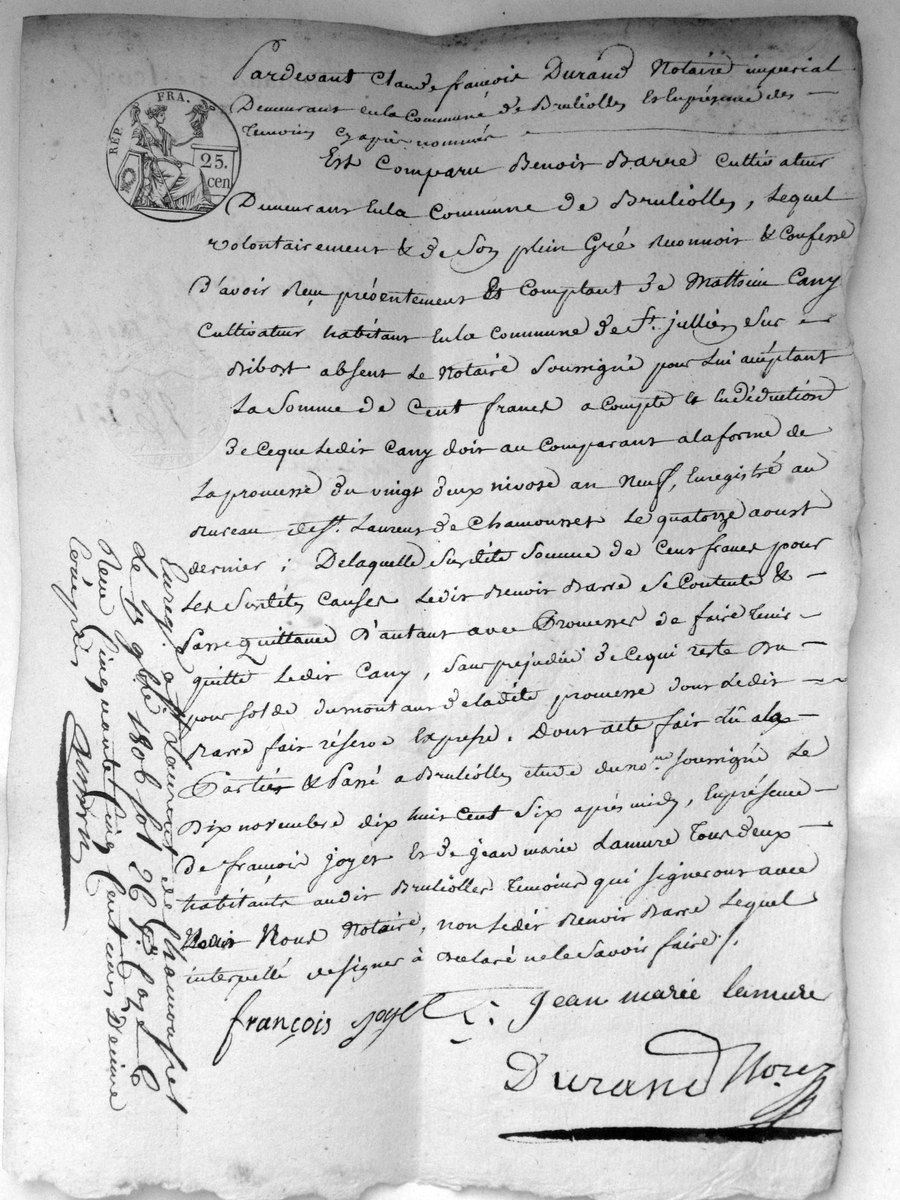 RÉP. FRA.
25.
cen
Pardevant Claude françois Durand Notaire imperial
Demeurant en la Commune de Brullolles Et En présence des
temoins cy après nommés
Est Comparu Benoit Barre Cultivateur
Demeurant En la Commune de Brullolles, Lequel
volontairement & de Son plein Gré Reconnoit & Confesse
D'avoir Reçu présentement Et Comptant de Mathieu Cany
Cultivateur habitant En la Commune de St. jullien Sur
Bibost absent Le Notaire Soussigné pour Lui acceptant
La Somme de Cent francs a Compte & En déduction
de Ceque Ledit Cany doit au Comparant a la forme de
La promesse du vingt deux nivose an Neuf, Enregistré au
Bureau de St. Laurent de Chamousset Le quatorze aoust
dernier ; De laquelle Susdite Somme de Cent francs pour
Les Susdites Causes Ledit Benoit Barre Se Contente &
Passe quittance D'autant avec Promesses de faire Tenir
quitte Ledit Cany, Sans préjudice de Cequi reste Du
pour Solde du montant de ladite promesse dont Ledit
Barre fait réserve Expresse. Dont acte fait
Parties & Passé a Brullolles etude du no.re Soussigné Le
Dix novembre dix huit Cent Six après midy, En présence
De françois joyet Et de jean marie Lamure Tous deux
habitants audit Brullolles Temoins qui Signeront avec
Nous Notaire, non Ledit Benoit Barre Lequel
interpellé de signer à Déclaré ne le Savoir faire ./.
françois joyet
Jean marie lamure
Durand No.re
Enreg. a St. Laurent de Chamousset
Le 13 9bre 1806 fol 26
Reçu Cinquante Cinq Centimes Decime